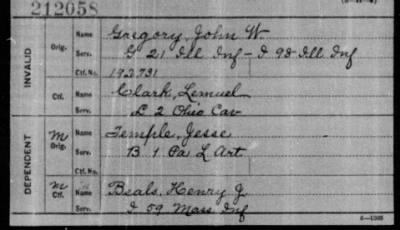 212058
INVALID
Orig.
Name Gregory, John W
Serv. G 21 Ill Inf - I 98 Ill Inf
Ctf. No. 192731
Ctf.
Name Clark, Lemuel
Serv. L 2 Ohio Cav
DEPENDENT
M Orig.
Name Temple, Jesse
Serv. B 1 Pa L Art
M Ctf.
Name Beals, Henry J.
Serv. I 59 Mass Inf